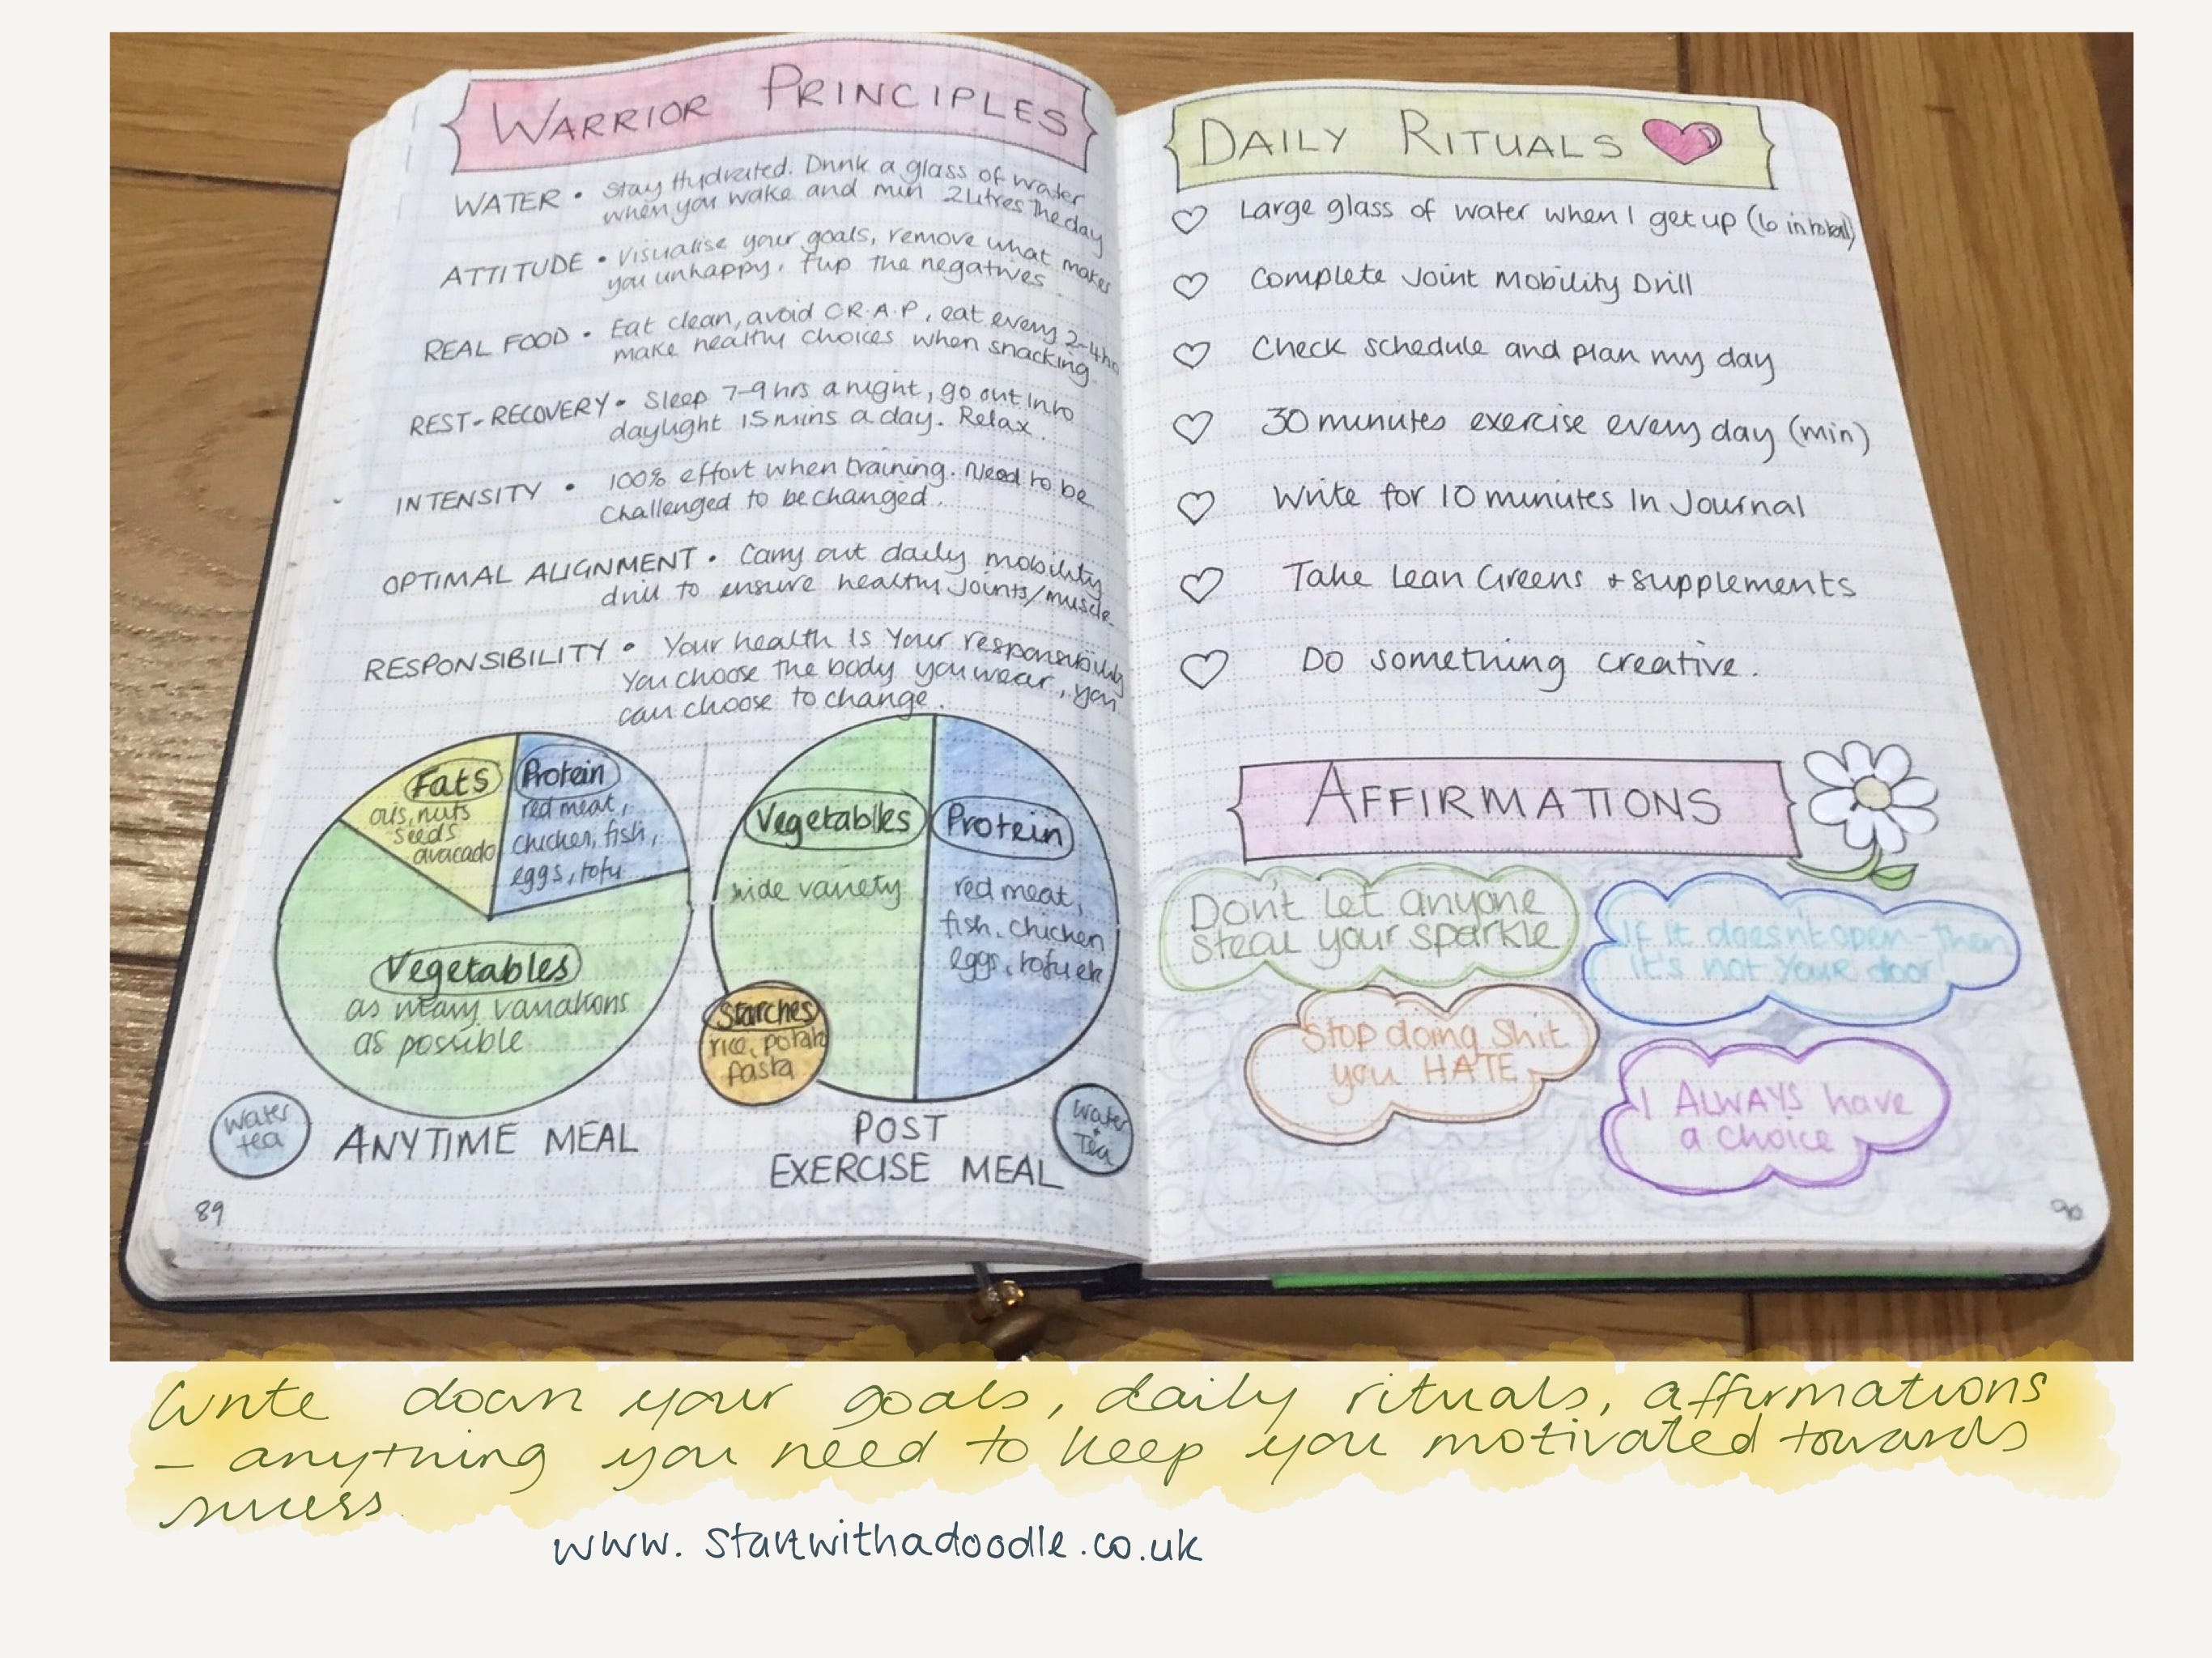 WARRIOR PRINCIPLES
WATER • Stay Hydrated. Drink a glass of water
when you wake and min 2Litres The day
ATTITUDE • Visualise your goals, remove what makes
you unhappy. Flip The negatives
REAL FOOD • Eat clean, avoid C.R.A.P, eat every 2-4hrs
make healthy choices when snacking
REST-RECOVERY • Sleep 7-9hrs a night, go out into
daylight 15mins a day. Relax.
INTENSITY • 100% effort when training. Need to be
challenged to be changed.
OPTIMAL ALIGNMENT • Carry out daily mobility
drill to ensure healthy joints/muscle
RESPONSIBILITY • Your health is Your responsibility
You choose the body you wear, you
can choose to change.
Fats
oils, nuts
seeds
avacado
Protein
red meat,
chicken, fish,
eggs, tofu
Vegetables
as many variations
as possible
Water
tea
ANYTIME MEAL
Vegetables
wide variety
Protein
red meat,
fish, chicken
eggs, tofu etc
Starches
rice, potato
pasta
POST
EXERCISE MEAL
Water
Tea
89
DAILY RITUALS
Large glass of water when I get up (6 in total)
Complete Joint Mobility Drill
Check schedule and plan my day
30 minutes exercise every day (min)
Write for 10 minutes In Journal
Take Lean Greens + supplements
Do something creative.
AFFIRMATIONS
Don't let anyone
steal your sparkle
If it doesn't open - then
it's not your door
Stop doing Shit
you HATE
I ALWAYS have
a choice
90
Write down your goals, daily rituals, affirmations
- anything you need to keep you motivated towards
success.
www.startwithadoodle.co.uk